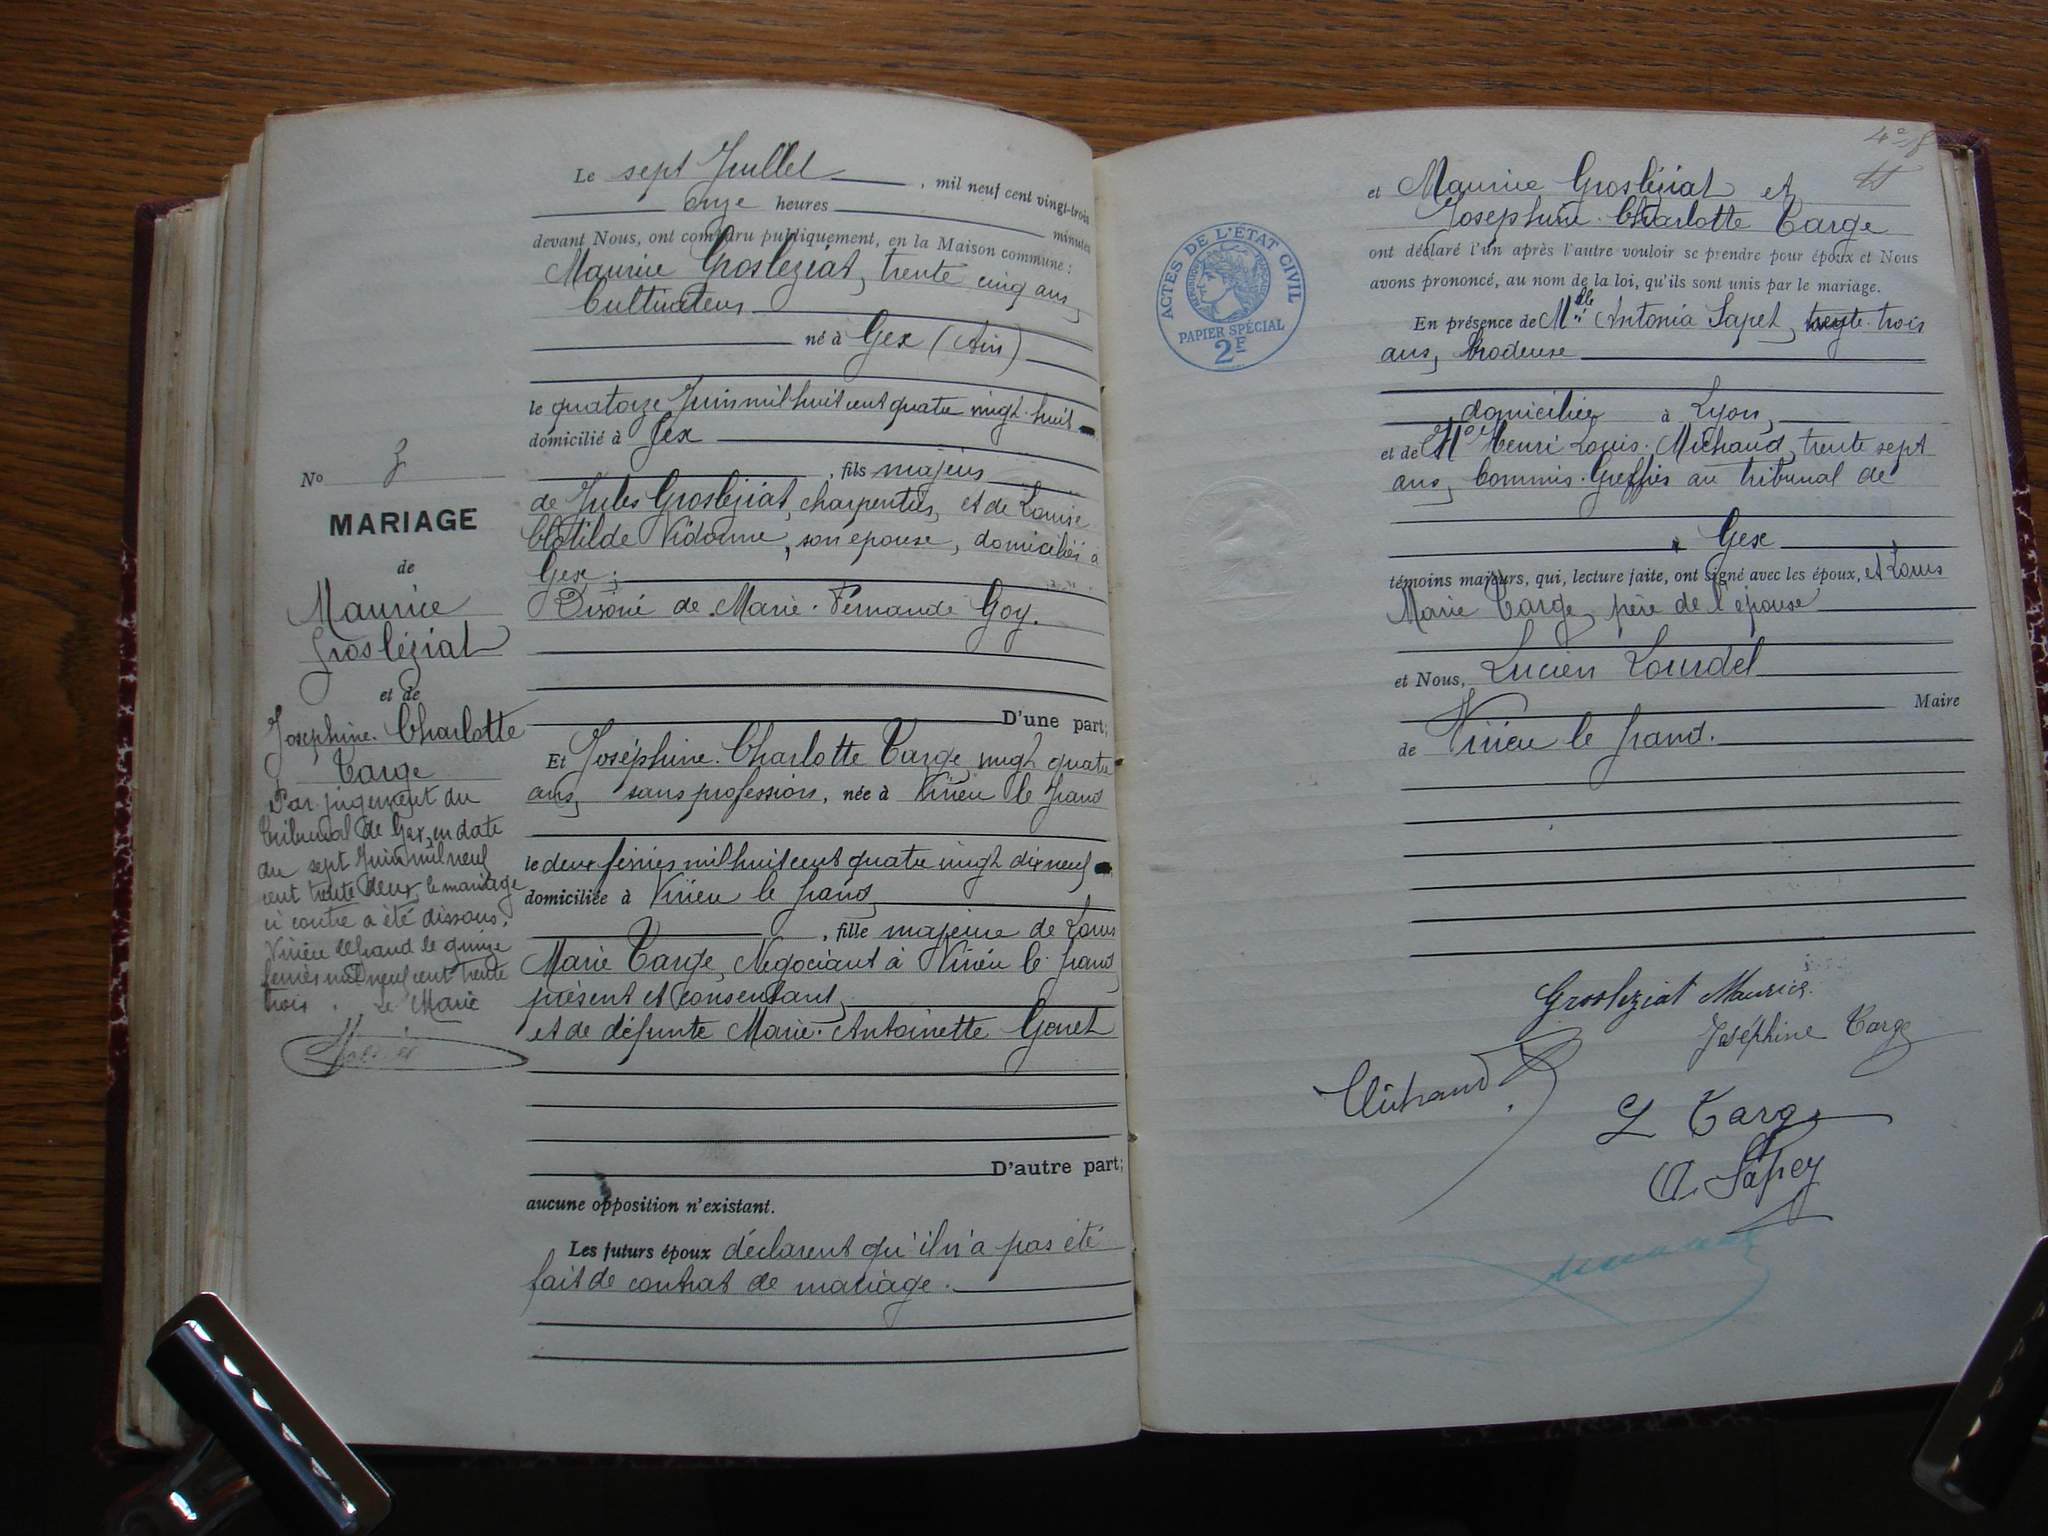 Le sept Juillet, mil neuf cent vingt-trois
onze heures minutes
devant Nous, ont comparu publiquement, en la Maison commune :
Maurice Grosléziat, trente cinq ans,
Cultivateur
né à Gex (Ain)
le quatorze Juin mil huit cent quatre vingt huit
domicilié à Gex
, fils majeur
de Jules Grosléziat, charpentier, et de Louise
Clotilde Vidonne, son épouse, domiciliés à
Gex ;
Divorcé de Marie Fernande Goy.
D'une part;
Et Joséphine Charlotte Targe vingt quatre
ans, sans profession, née à Virieu le Grand
le deux février mil huit cent quatre vingt dix neuf
domiciliée à Virieu le Grand
, fille majeure de Louis
Marie Targe, Négociant à Virieu le Grand
présent et consentant,
et de défunte Marie Antoinette Genet
D'autre part;
aucune opposition n'existant.
Les futurs époux déclarent qu'il n'a pas été
fait de contrat de mariage.
No
MARIAGE
de
Maurice
Grosléziat
et de
Joséphine Charlotte
Targe
Par jugement du
tribunal de Gex, en date
du sept Juin mil neuf
cent trente deux, le mariage
ci contre a été dissous.
Virieu le Grand le quinze
février mil neuf cent trente
trois. Le Maire
et Maurice Grosléziat et
Joséphine Charlotte Targe
ont déclaré l'un après l'autre vouloir se prendre pour époux et Nous
avons prononcé, au nom de la loi, qu'ils sont unis par le mariage.
En présence de Mlle Antonia Sapet, trente trois
ans, brodeuse
domiciliée à Lyon,
et de Mr Henri Louis Michaud, trente sept
ans, Commis Greffier au tribunal de
à Gex
témoins majeurs, qui, lecture faite, ont signé avec les époux, et Louis
Marie Targe, père de l'épouse
et Nous, Lucien Lourdel
Maire
de Virieu le Grand.
ACTES DE L'ÉTAT CIVIL
RÉPUBLIQUE FRANÇAISE
PAPIER SPÉCIAL
2F
Grosleziat Maurice
Joséphine Targe
Michaud
L Targe
A. Sapey